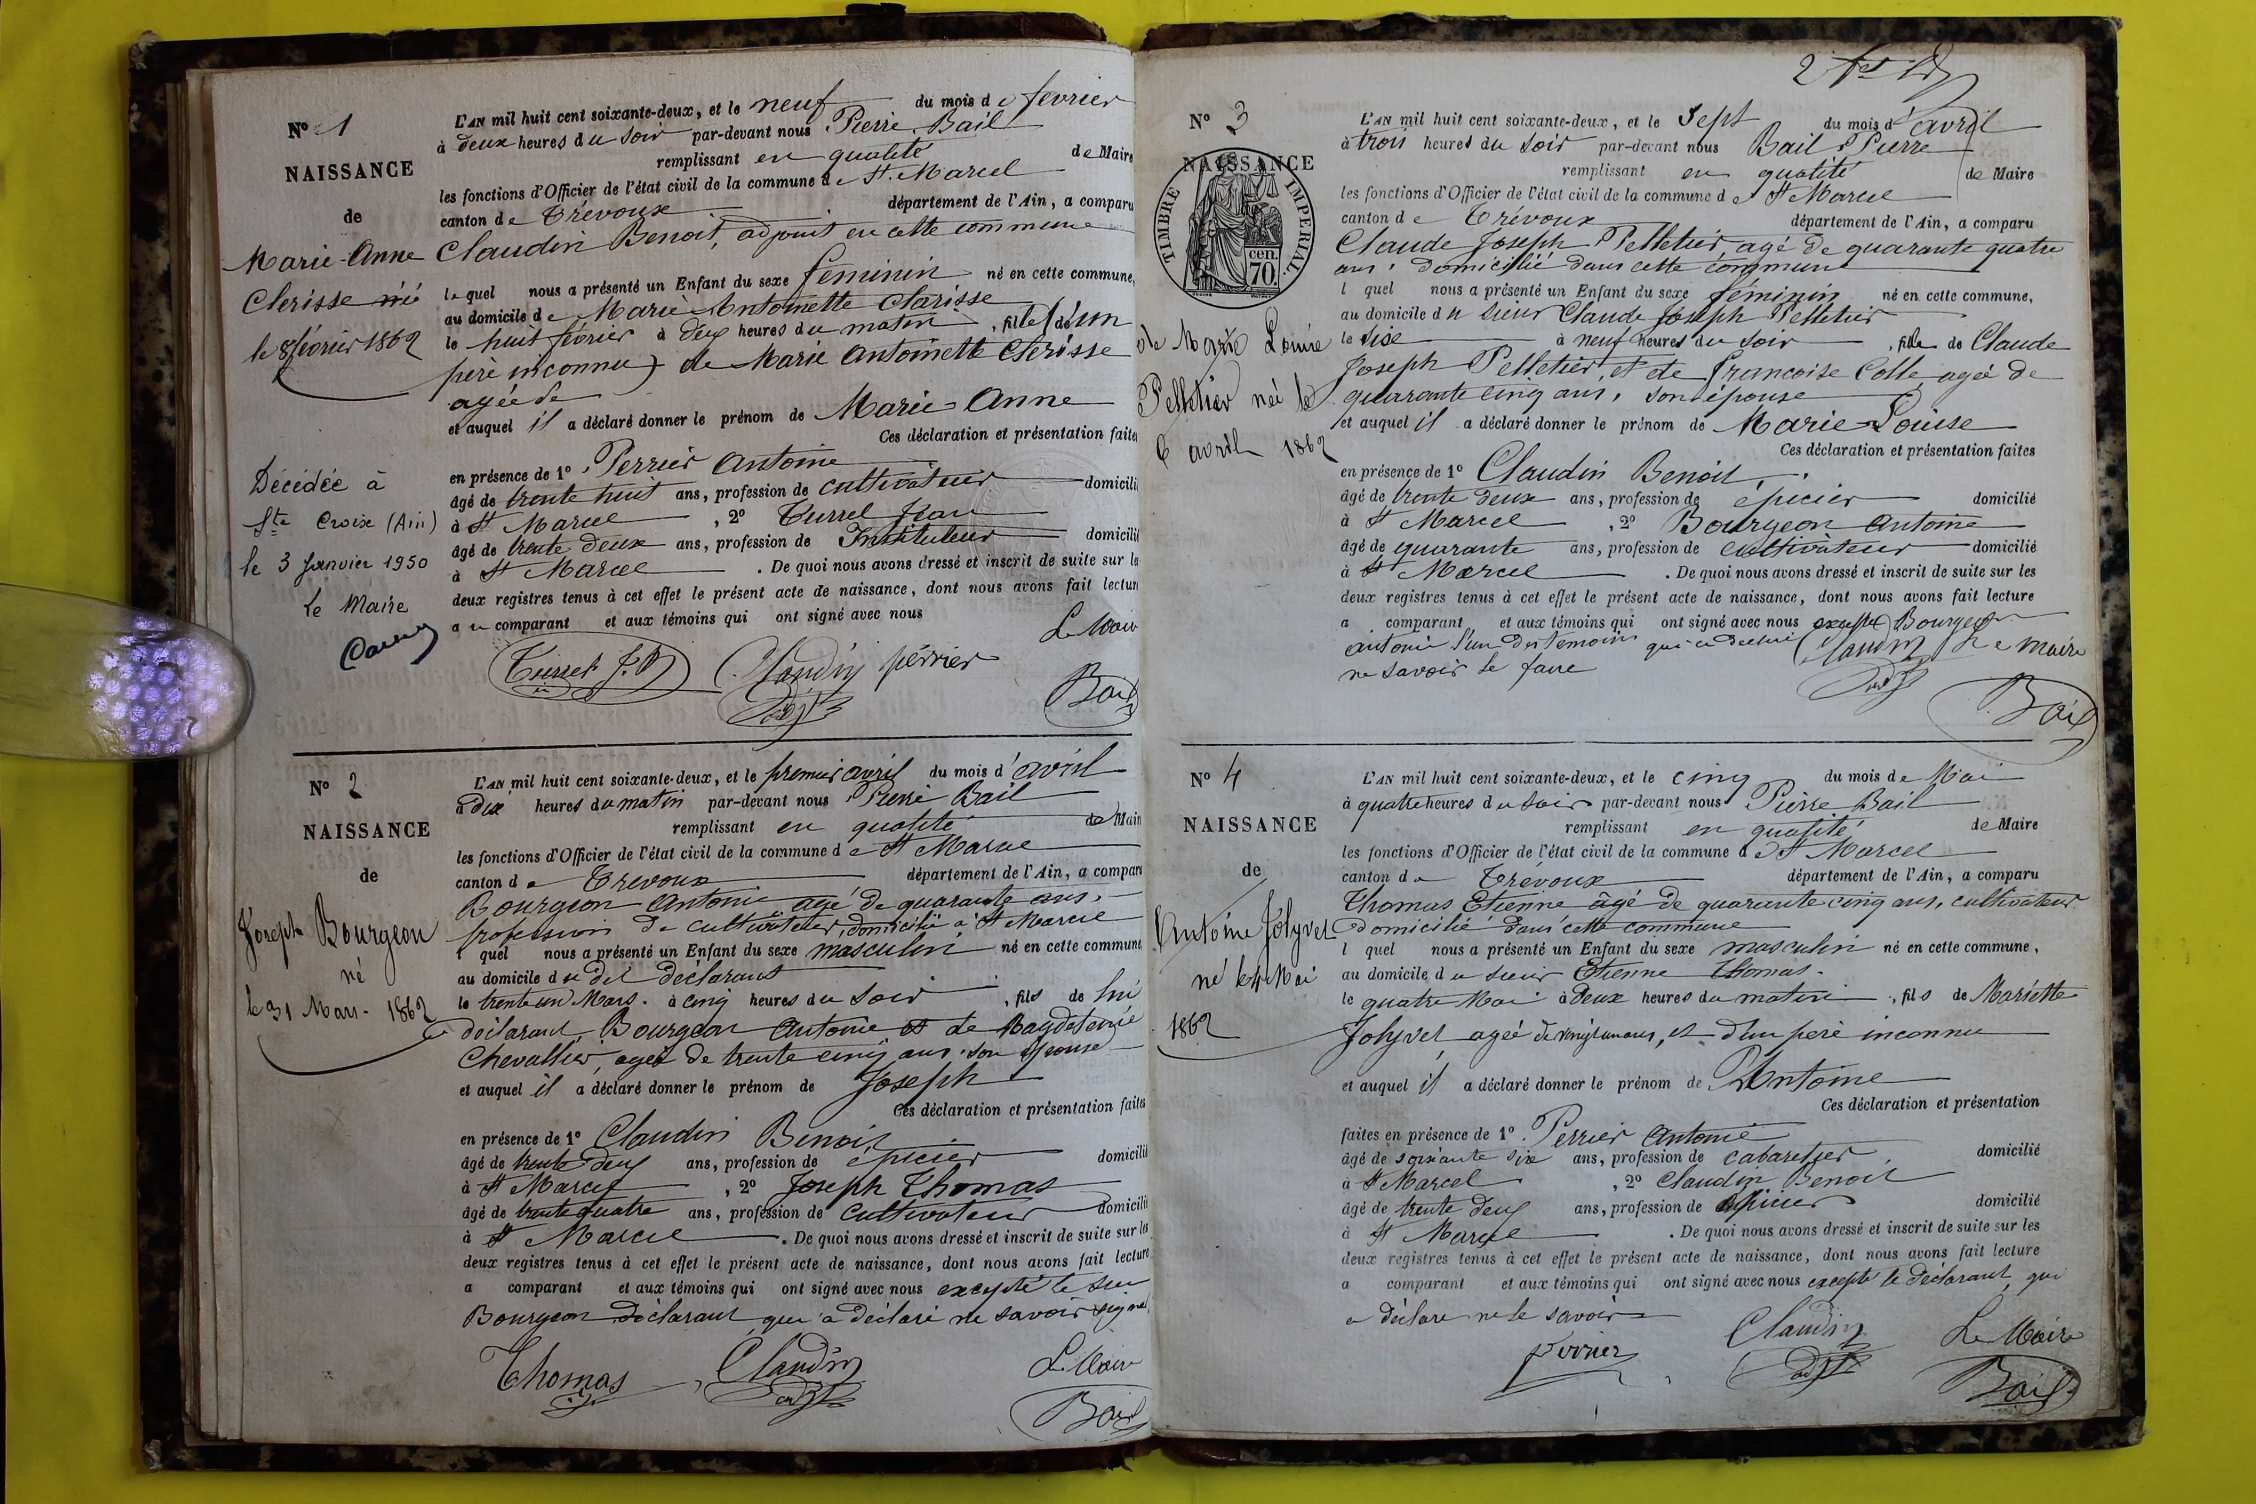 N° 1
NAISSANCE
de
Marie-Anne
Clerisse née
le 8 février 1862
Décédée à
Ste Croix (Ain)
le 3 Janvier 1950
Le Maire
L'AN mil huit cent soixante-deux, et le neuf du mois de février
à deux heures du soir par-devant nous Pierre Bail
remplissant en qualité de Maire
les fonctions d'Officier de l'état civil de la commune de St. Marcel
canton de Trévoux département de l'Ain, a comparu
Claudin Benoit, adjoint en cette commune
lequel nous a présenté un Enfant du sexe féminin né en cette commune,
au domicile de Marie Antoinette Clarisse
le huit février à deux heures du matin, fille (d'un
père inconnu) de Marie Antoinette Clerisse
agée de
et auquel il a déclaré donner le prénom de Marie-Anne
Ces déclaration et présentation faites
en présence de 1° Perrier Antoine
âgé de trente huit ans, profession de cultivateur domicilié
à St Marcel, 2° Turrel Jean
âgé de trente deux ans, profession de Instituteur domicilié
à St Marcel. De quoi nous avons dressé et inscrit de suite sur les
deux registres tenus à cet effet le présent acte de naissance, dont nous avons fait lecture
au comparant et aux témoins qui ont signé avec nous
Le Maire
Turrel J. Claudin perrier
adjt Bail
N° 2
NAISSANCE
de
Joseph Bourgeon
né
le 31 Mars 1862
L'AN mil huit cent soixante-deux, et le premier avril du mois d'avril
à dix heures du matin par-devant nous Pierre Bail
remplissant en qualité de Maire
les fonctions d'Officier de l'état civil de la commune de St Marcel
canton de Trévoux département de l'Ain, a comparu
Bourgeon Antoine agé de quarante ans,
profession de cultivateur, domicilié à St Marcel
l quel nous a présenté un Enfant du sexe masculin né en cette commune
au domicile du dit déclarant
le trente un Mars. à cinq heures du soir, fils de lui
déclarant, Bourgeon Antoine et de Magdeleine
Chevallier, agée de trente cinq ans son épouse
et auquel il a déclaré donner le prénom de Joseph
Ces déclaration et présentation faites
en présence de 1° Claudin Benoit
âgé de trente deux ans, profession de épicier domicilié
à St Marcel, 2° Joseph Thomas
âgé de trente quatre ans, profession de cultivateur domicilié
à St Marcel. De quoi nous avons dressé et inscrit de suite sur les
deux registres tenus à cet effet le présent acte de naissance, dont nous avons fait lecture
a comparant et aux témoins qui ont signé avec nous excepté le sieur
Bourgeon déclarant qui a déclaré ne savoir signer
Thomas Claudin Le Maire
adjt Bail
N° 3
NAISSANCE
TIMBRE IMPERIAL.
70 cen.
de Marie Louise
Pelletier née le
6 avril 1862
L'AN mil huit cent soixante-deux, et le sept du mois d'avril
à trois heures du soir par-devant nous Bail Pierre
remplissant en qualité de Maire
les fonctions d'Officier de l'état civil de la commune de St Marcel
canton de Trévoux département de l'Ain, a comparu
Claude Joseph Pelletier, agé de quarante quatre
ans, domicilié dans cette commune
l quel nous a présenté un Enfant du sexe féminin né en cette commune,
au domicile du sieur Claude Joseph Pelletier
le six à neuf heures du soir, fille de Claude
Joseph Pelletier, et de Françoise Colle, agée de
quarante cinq ans, son épouse
et auquel il a déclaré donner le prénom de Marie-Louise
Ces déclaration et présentation faites
en présence de 1° Claudin Benoit
âgé de trente deux ans, profession de épicier domicilié
à St Marcel, 2° Bourgeon Antoine
âgé de quarante ans, profession de cultivateur domicilié
à St Marcel. De quoi nous avons dressé et inscrit de suite sur les
deux registres tenus à cet effet le présent acte de naissance, dont nous avons fait lecture
a comparant et aux témoins qui ont signé avec nous excepté Bourgeon
antoine l'un des temoins qui a déclaré
ne savoir le faire
Claudin Le Maire
adjt
Bail
N° 4
NAISSANCE
de
Antoine Jolyvet
né le 4 Mai
1862
L'AN mil huit cent soixante-deux, et le cinq du mois de Mai
à quatre heures du soir par-devant nous Pierre Bail
remplissant en qualité de Maire
les fonctions d'Officier de l'état civil de la commune de St Marcel
canton de Trévoux département de l'Ain, a comparu
Thomas Etienne âgé de quarante cinq ans, cultivateur
domicilié dans cette commune
l quel nous a présenté un Enfant du sexe masculin né en cette commune,
au domicile du sieur Etienne Thomas.
le quatre Mai à deux heures du matin, fils de Mariette
Jolyvet agée de vingt un ans, et d'un père inconnu
et auquel il a déclaré donner le prénom de Antoine
Ces déclaration et présentation
faites en présence de 1° Perrier Antoine
âgé de soixante six ans, profession de cabaretier domicilié
à St Marcel, 2° Claudin Benoit
âgé de trente deux ans, profession de épicier domicilié
à St Marcel. De quoi nous avons dressé et inscrit de suite sur les
deux registres tenus à cet effet le présent acte de naissance, dont nous avons fait lecture
a comparant et aux témoins qui ont signé avec nous excepté le déclarant qui
a déclaré ne le savoir
Perrier Claudin Le Maire
adjt Bail